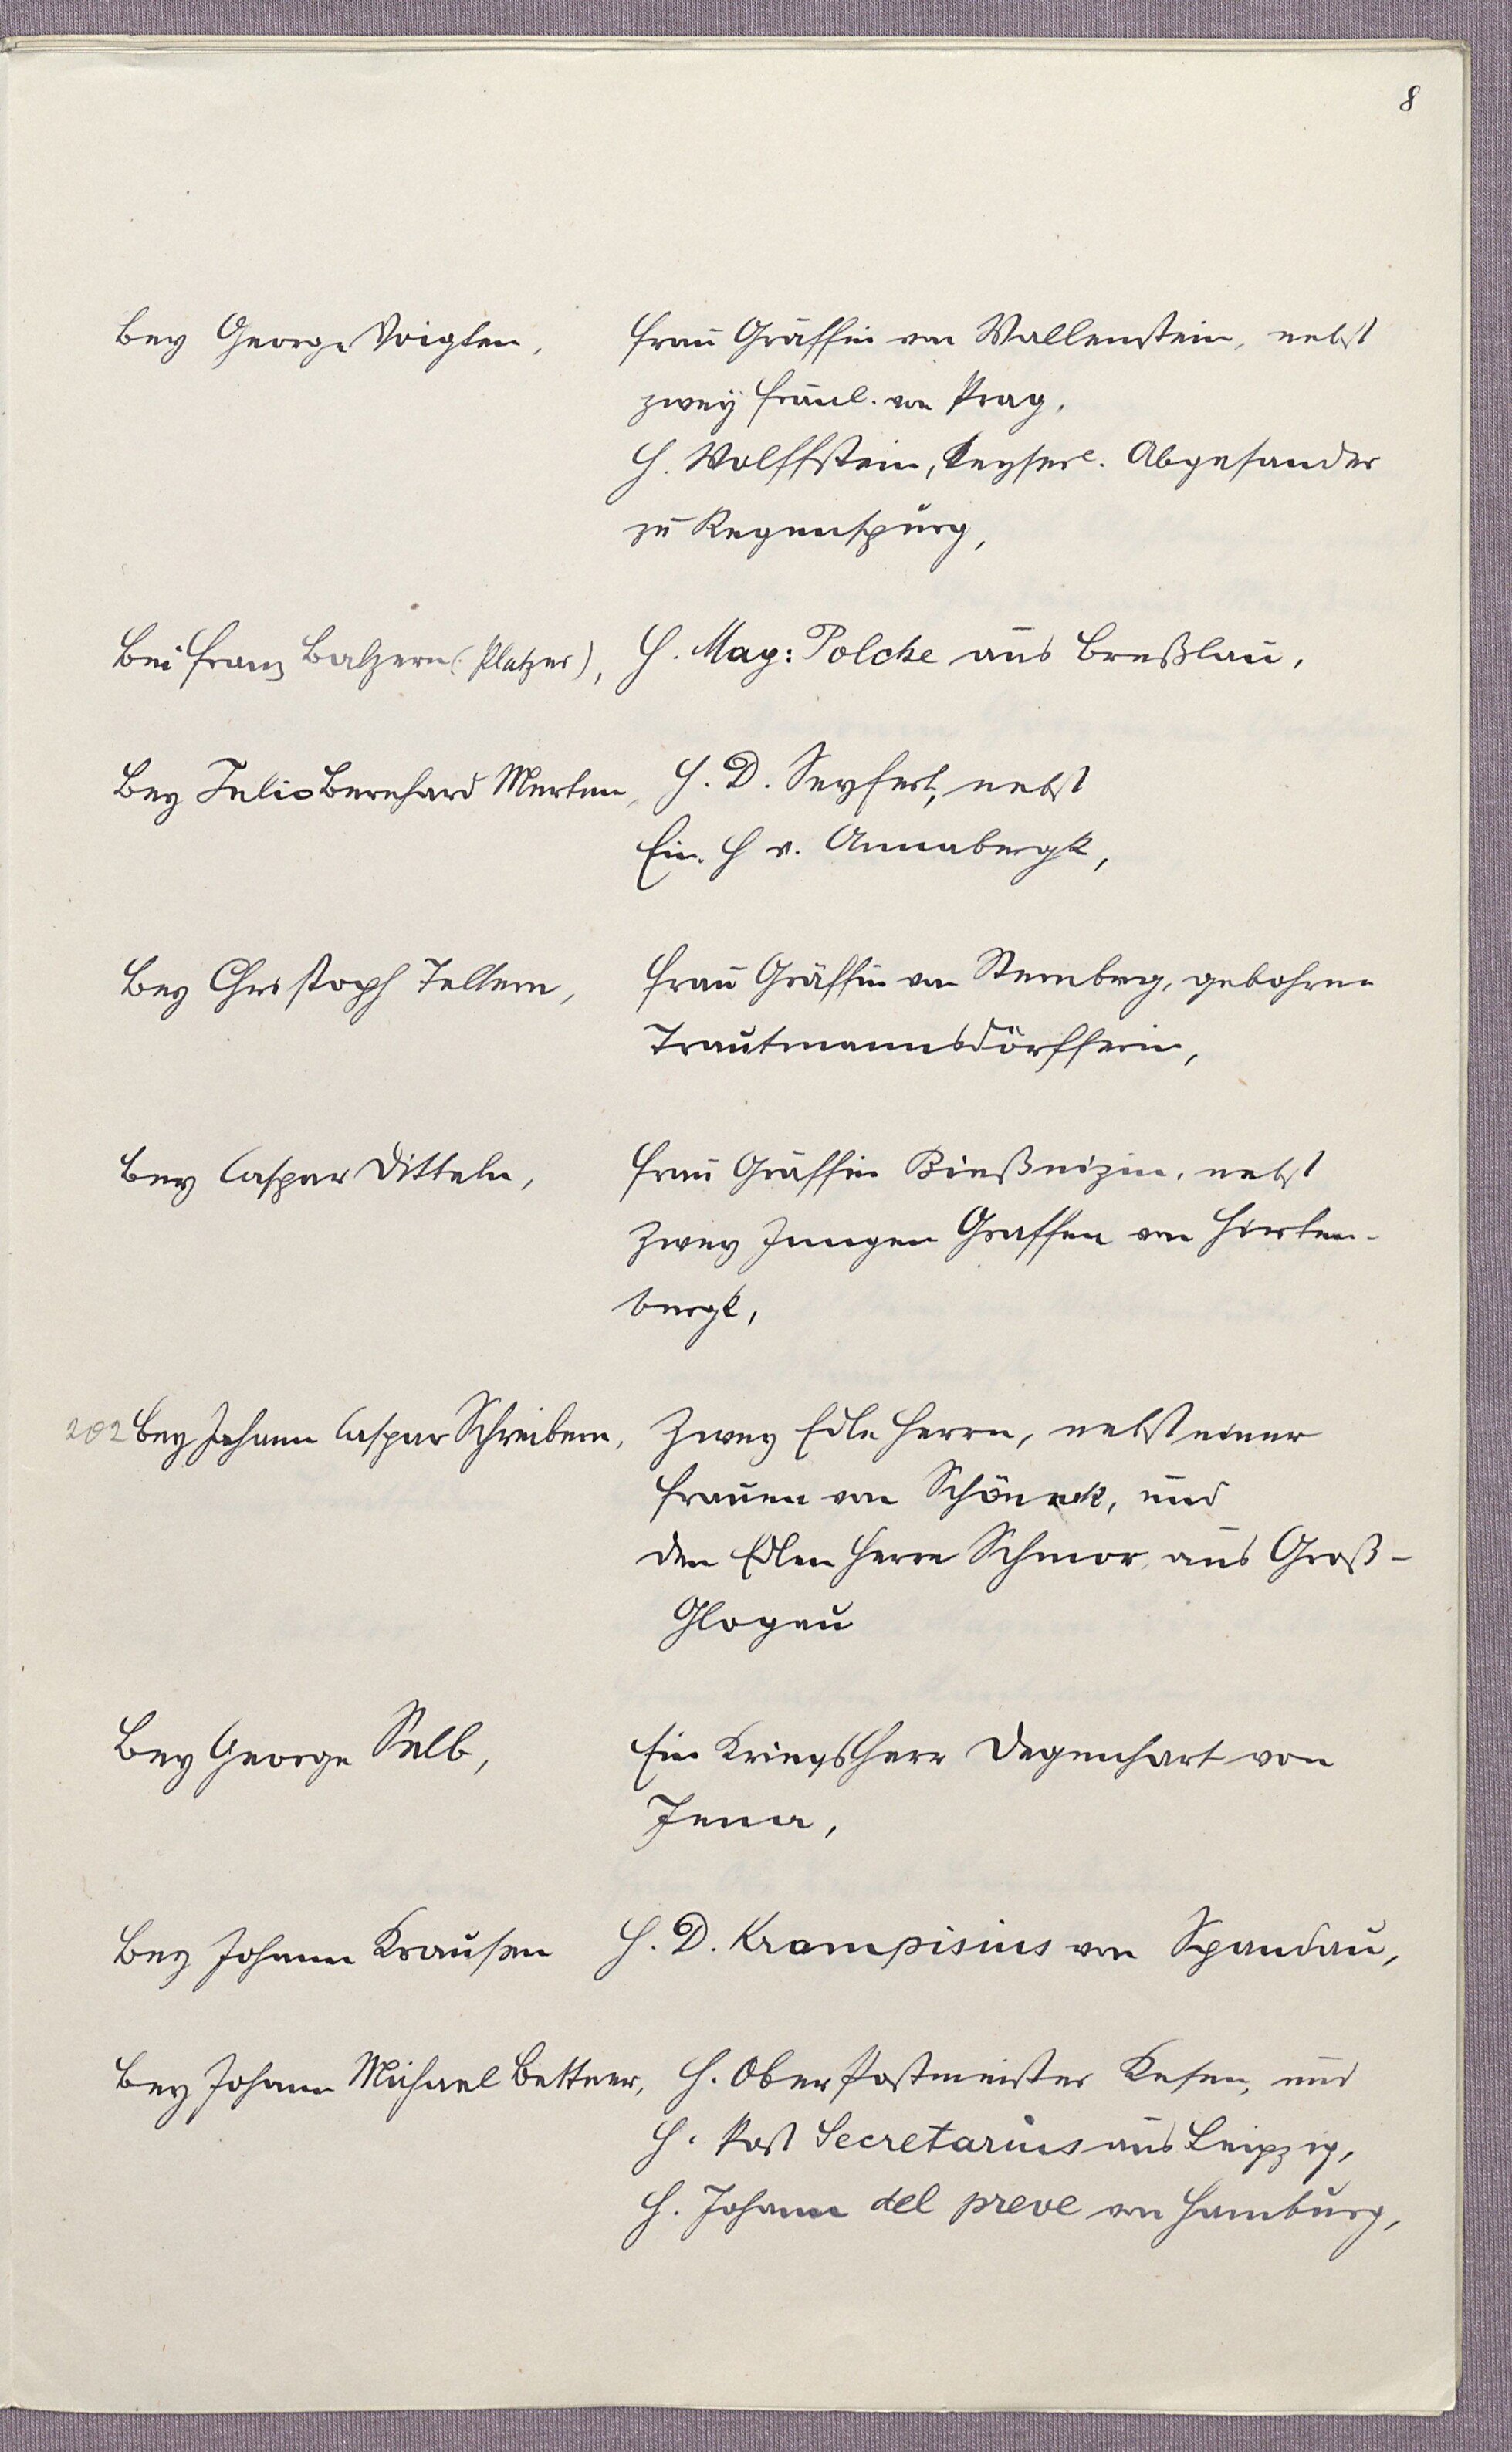 8
Bey George Voigten, Frau Gräffin von Wallenstein, nebst
zweÿ Fräul. von Prag,
H. Wolffstein, Keyserl. Abgesander
zu Regenspurg,
Bei Franz Balzern (Platzer), H. Mag: Polcke aus Breßlau,
Bey Julio Bernhard Merten, H. D. Seyfert, nebst
Ein. H v. Annabergk,
Bey Christoph Tellern, Frau Gräffin von Sternberg, gebohrne
Trautmannsdörfferin,
Bey Caspar Ditteln, Frau Gräffin Bießnizin, nebst
Zwey Jungen Graffen von Hirten-
bergk,
202 Bey Johann Caspar Schreibern, Zwey Edle Herrn, nebst einer
Frauen von Schöneck, und
den Edlen Herrn Schmor, aus Groß-
Glogau
Bey George Selb, Ein Kriegsherr Degenhart von
Jena,
Bey Johann Krausen H. D. Krampisius von Spandau,
Bey Johann Michael Bettner, H. Ober Postmeister Kesen, und
H. Post Secretarius aus Leipzig,
H. Johann del preve von Hamburg,